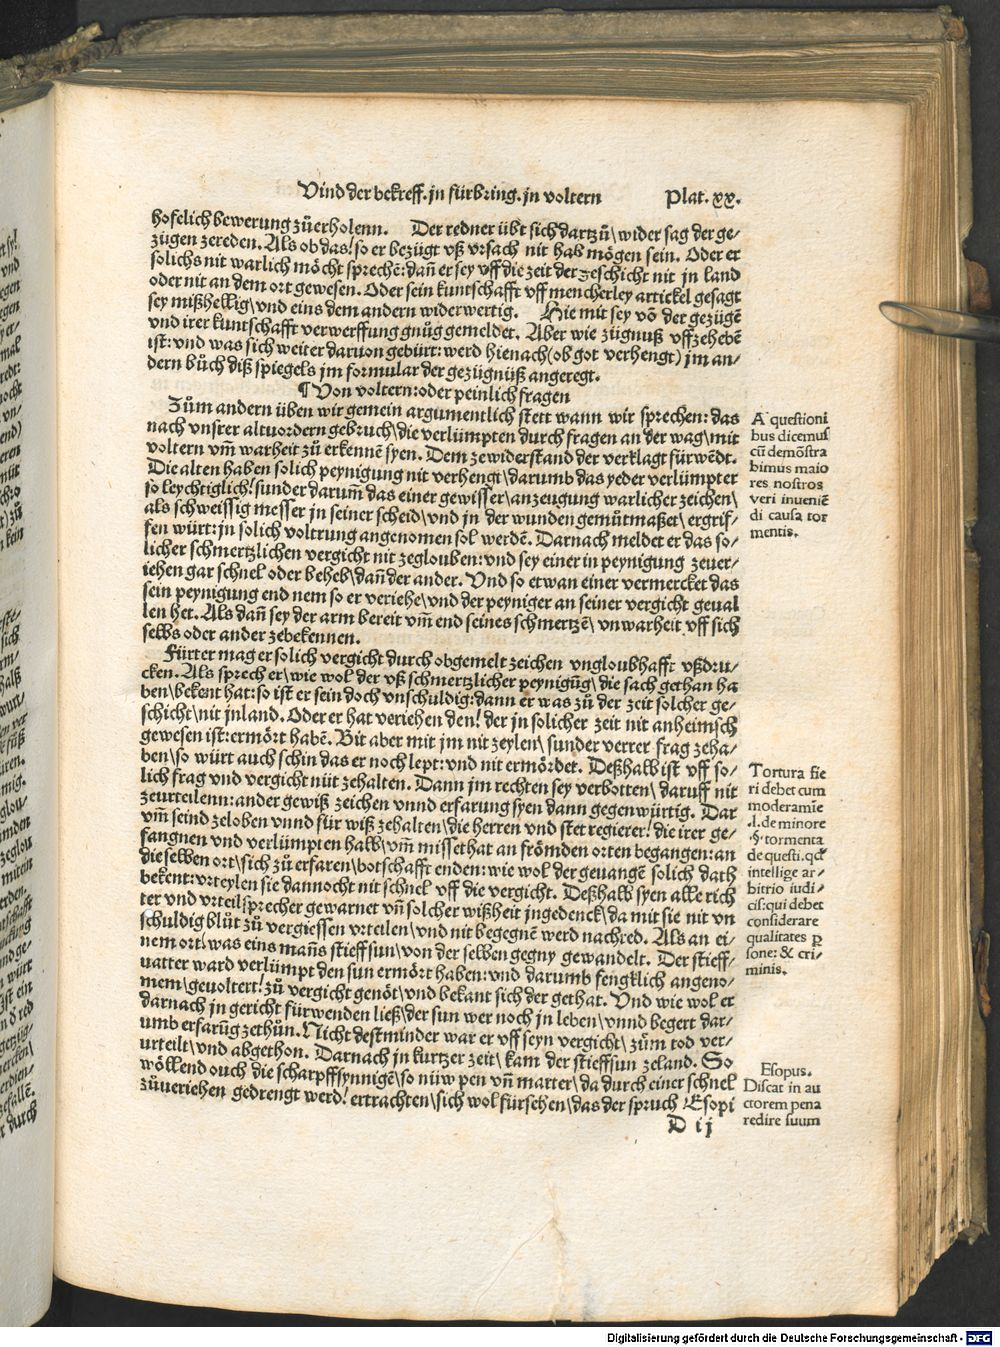 Vind der bekreff. jn fürbring. jn voltern Plat. xx.
hofelich bewerung zůerholenn. Der redner übt sich dartzů\ wider sag der ge-
zügen zereden. Als ob das! so er bezügt vß vrsach nit hab mögen sein. Oder er
solichs nit warlich möcht sprechē: dañ er sey vff die zeit der geschicht nit jn land
oder nit an dem ort gewesen. Oder sein kuntschafft vff mencherley artickel gesagt
sey mißhellig\ vnd eins dem andern widerwertig. Hie mit sey võ der gezügē
vnd irer kuntschafft verwerffung gnůg gemeldet. Aber wie zügnuß vffzehebē
ist: vnd was sich weiter daruon gebürt: werd hienach (ob got verhengt) jm an-
dern bůch diß spiegels jm formular der gezügnüß angeregt.
¶ Von voltern: oder peinlich fragen
Zům andern üben wir gemein argumentlich stett wann wir sprechen: das
nach vnsrer altuordern gebruch\ die verlümpten durch fragen an der wag\ mit
voltern vm̄ warheit zů erkennē syen. Dem zewiderstand der verklagt fürwēdt.
Die alten haben solich peynigung nit verhengt\ darumb das yeder verlümpter
so leychtiglich! sunder darum̄ das einer gewisser\ anzeugung warlicher zeichen\
als schweissig messer jn seiner scheid\ vnd jn der wunden gemůtmaßet\ ergrif-
fen würt: jn solich voltrung angenomen sol werdē. Darnach meldet er das so-
licher schmertzlichen vergicht nit zeglouben: vnd sey einer in peynigung zeuer-
iehen gar schnel oder beheb\ dañ der ander. Vnd so etwan einer vermercket das
sein peynigung end nem so er veriehe\ vnd der peyniger an seiner vergicht geual
len het. Als dañ sey der arm bereit vm̄ end seines schmertzē\ vnwarheit vff sich
selbs oder ander zebekennen.
Fürter mag er solich vergicht durch obgemelt zeichen vngloubhafft vßdru-
cken. Als sprech er\ wie wol der vß schmertzlicher peynigūg\ die sach gethan ha
ben\ bekent hat: so ist er sein doch vnschuldig: dann er was zů der zeit solcher ge-
schicht\ nit jnland. Oder er hat veriehen den! der jn solicher zeit nit anheimsch
gewesen ist: ermört habē. Bit aber mit jm nit zeylen\ sunder verrer frag zeha-
ben\ so würt auch schin das er noch lept: vnd nit ermördet. Deßhalb ist vff so-
lich frag vnd vergicht nüt zehalten. Dann jm rechten sey verbotten\ daruff nit
zeurteilenn: ander gewiß zeichen vnnd erfarung syen dann gegenwürtig. Dar
vm̄ seind zeloben vnnd für wiß zehalten\ die herren vnd stet regierer! die irer ge-
fangnen vnd verlümpten halb\ vm̄ missethat an frömden orten begangen: an
die selben ort\ sich zů erfaren\ botschafft enden: wie wol der geuangē solich dath
bekent: vrteylen sie dannocht nit schnel vff die vergicht. Deßhalb syen alle rich
ter vnd vrteilsprecher gewarnet vñ solcher wißheit jngedenck\ da mit sie nit vn
schuldig blůt zů vergiessen vrteilen\ vnd nit begegnē werd nachred. Als an ei-
nem ort! was eins mañs stieffsun\ von der selben gegny gewandelt. Der stieff-
uatter ward verlümpt den sun ermört haben: vnd darumb fengklich angeno-
mem\ geuoltert! zů vergicht genöt\ vnd bekant sich der gethat. Vnd wie wol er
darnach jn gericht fürwenden ließ\ der sun wer noch jn leben\ vnnd begert dar-
umb erfarūg zethůn. Nicht destminder war er vff seyn vergicht\ zům tod ver-
urteilt\ vnd abgethon. Darnach jn kurtzer zeit\ kam der stieffsun zeland. So
wöllend ouch die scharpffsynnigē\ so nüw pen vñ marter\ da durch einer schnel
zůueriehen gedrengt werd! ertrachten\ sich wol fürsehen\ das der spruch Esopi
D ij
A questioni
bus dicemus
cū demõstra
bimus maio
res nostros
veri inueniē
di causa tor
mentis.
Tortura fie
ri debet cum
moderamīe
.l. de minore
.§. tormenta
de questi. qđ
intellige ar-
bitrio iudi-
cis: qui debet
considerare
qualitates ꝑ
sone: & cri-
minis.
Esopus.
Discat in au
ctorem pena
redire suum
Digitalisierung gefördert durch die Deutsche Forschungsgemeinschaft - DFG